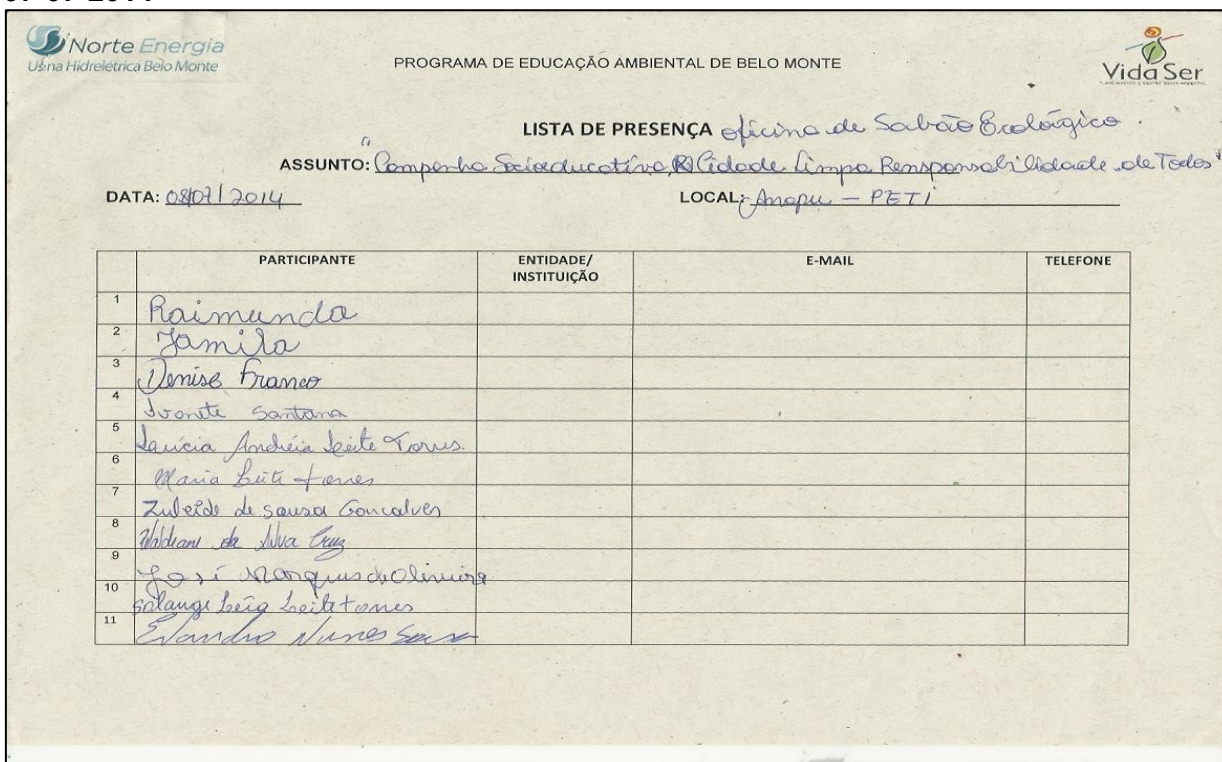 Norte Energia
Usina Hidrelétrica Belo Monte
PROGRAMA DE EDUCAÇÃO AMBIENTAL DE BELO MONTE
Vida Ser
LISTA DE PRESENÇA oficina de Sabão Ecológico.
ASSUNTO: "Campanha Socioeducativa, Cidade Limpa Rensponsabilidade de Todos"
DATA: 08/07/2014 LOCAL: Anapu - PETI
PARTICIPANTE ENTIDADE/ INSTITUIÇÃO E-MAIL TELEFONE
1 Raimunda
2 Jamila
3 Denise Franco
4 Ivonete Santana
5 Andréia Leite Torres.
6 Maria Leite torres
7 Zuleide de sousa Goncalves
8 da Silva Cruz
9 José Marques de Oliveira
10 Solange Leite torres
11 Evandro Nunes Sousa